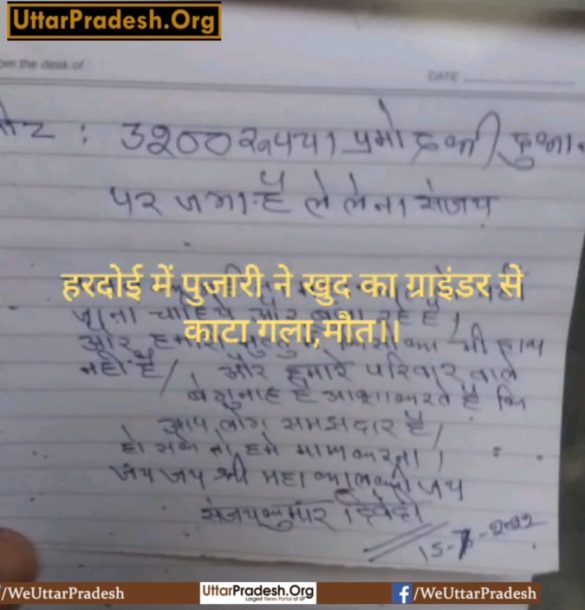 UttarPradesh.Org
from the desk of
DATE
नोट : 3200 रूपया प्रमोद की दुका
पर जमा है ले लेना संजय
हरदोई में पुजारी ने खुद का ग्राइंडर से
काटा गला,मौत।।
जाना चाहिये और
और हमारी का भी हाथ
नहीं है / और हमारे परिवार वाले
बेगुनाह है आशा करते है कि
आप लोग समझदार है /
हो सके तो हमे माफ करना ।
जय जय श्री महाकाल की जय
संजय कुमार द्विवेदी
/WeUttarPradesh
UttarPradesh.Org
Largest News Portal of UP
/WeUttarPradesh